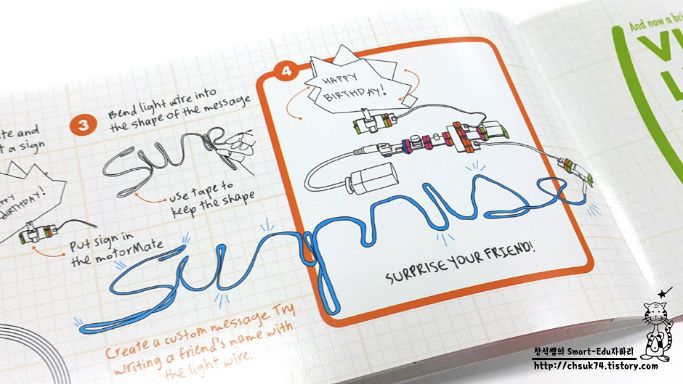 ite and
t a sign
PPY
IRTHDAY!
Put sign in
the motorMate
3
Bend light wire into
the shape of the message
surpr
use tape to
keep the shape
surprise
Create a custom message. Try
writing a friend's name with
the light wire.
4
HAPPY
BIRTHDAY!
SURPRISE YOUR FRIEND!
And now a bri
창석쌤의 Smart-Edu자파리
http://chsuk74.tistory.com